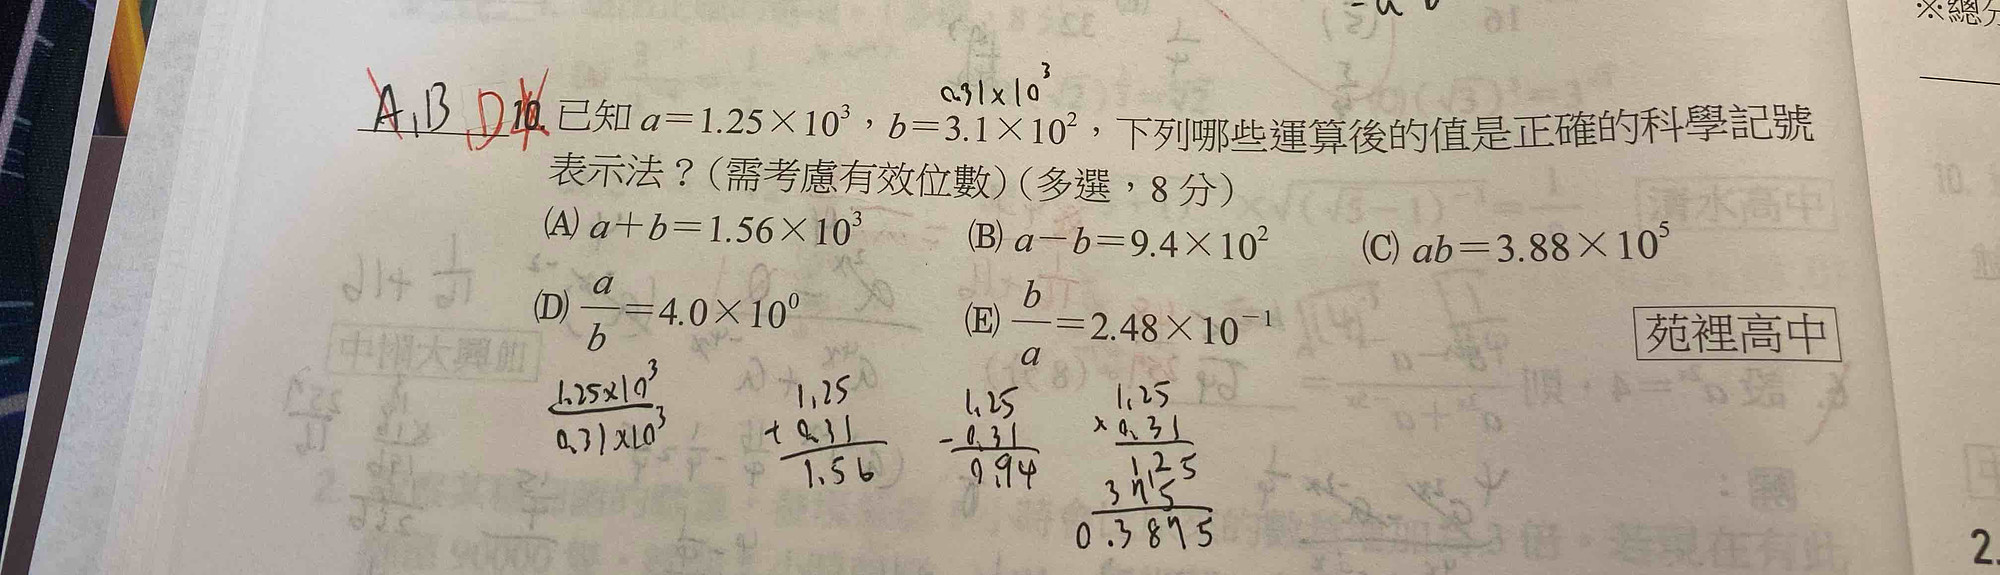 16
※總分
0.31×10³
A,B D 10. 已知 a＝1.25×10³，b＝3.1×10²，下列哪些運算後的值是正確的科學記號
表示法？（需考慮有效位數）（多選，8 分）
(A) a＋b＝1.56×10³ (B) a－b＝9.4×10² (C) ab＝3.88×10⁵
(D) a/b＝4.0×10⁰ (E) b/a＝2.48×10⁻¹
苑裡高中
1.25×10³
0.31×10³
1.25
+ 0.31
1.56
1.25
- 0.31
0.94
1.25
× 0.31
1.25
3 75
0.3875
2.